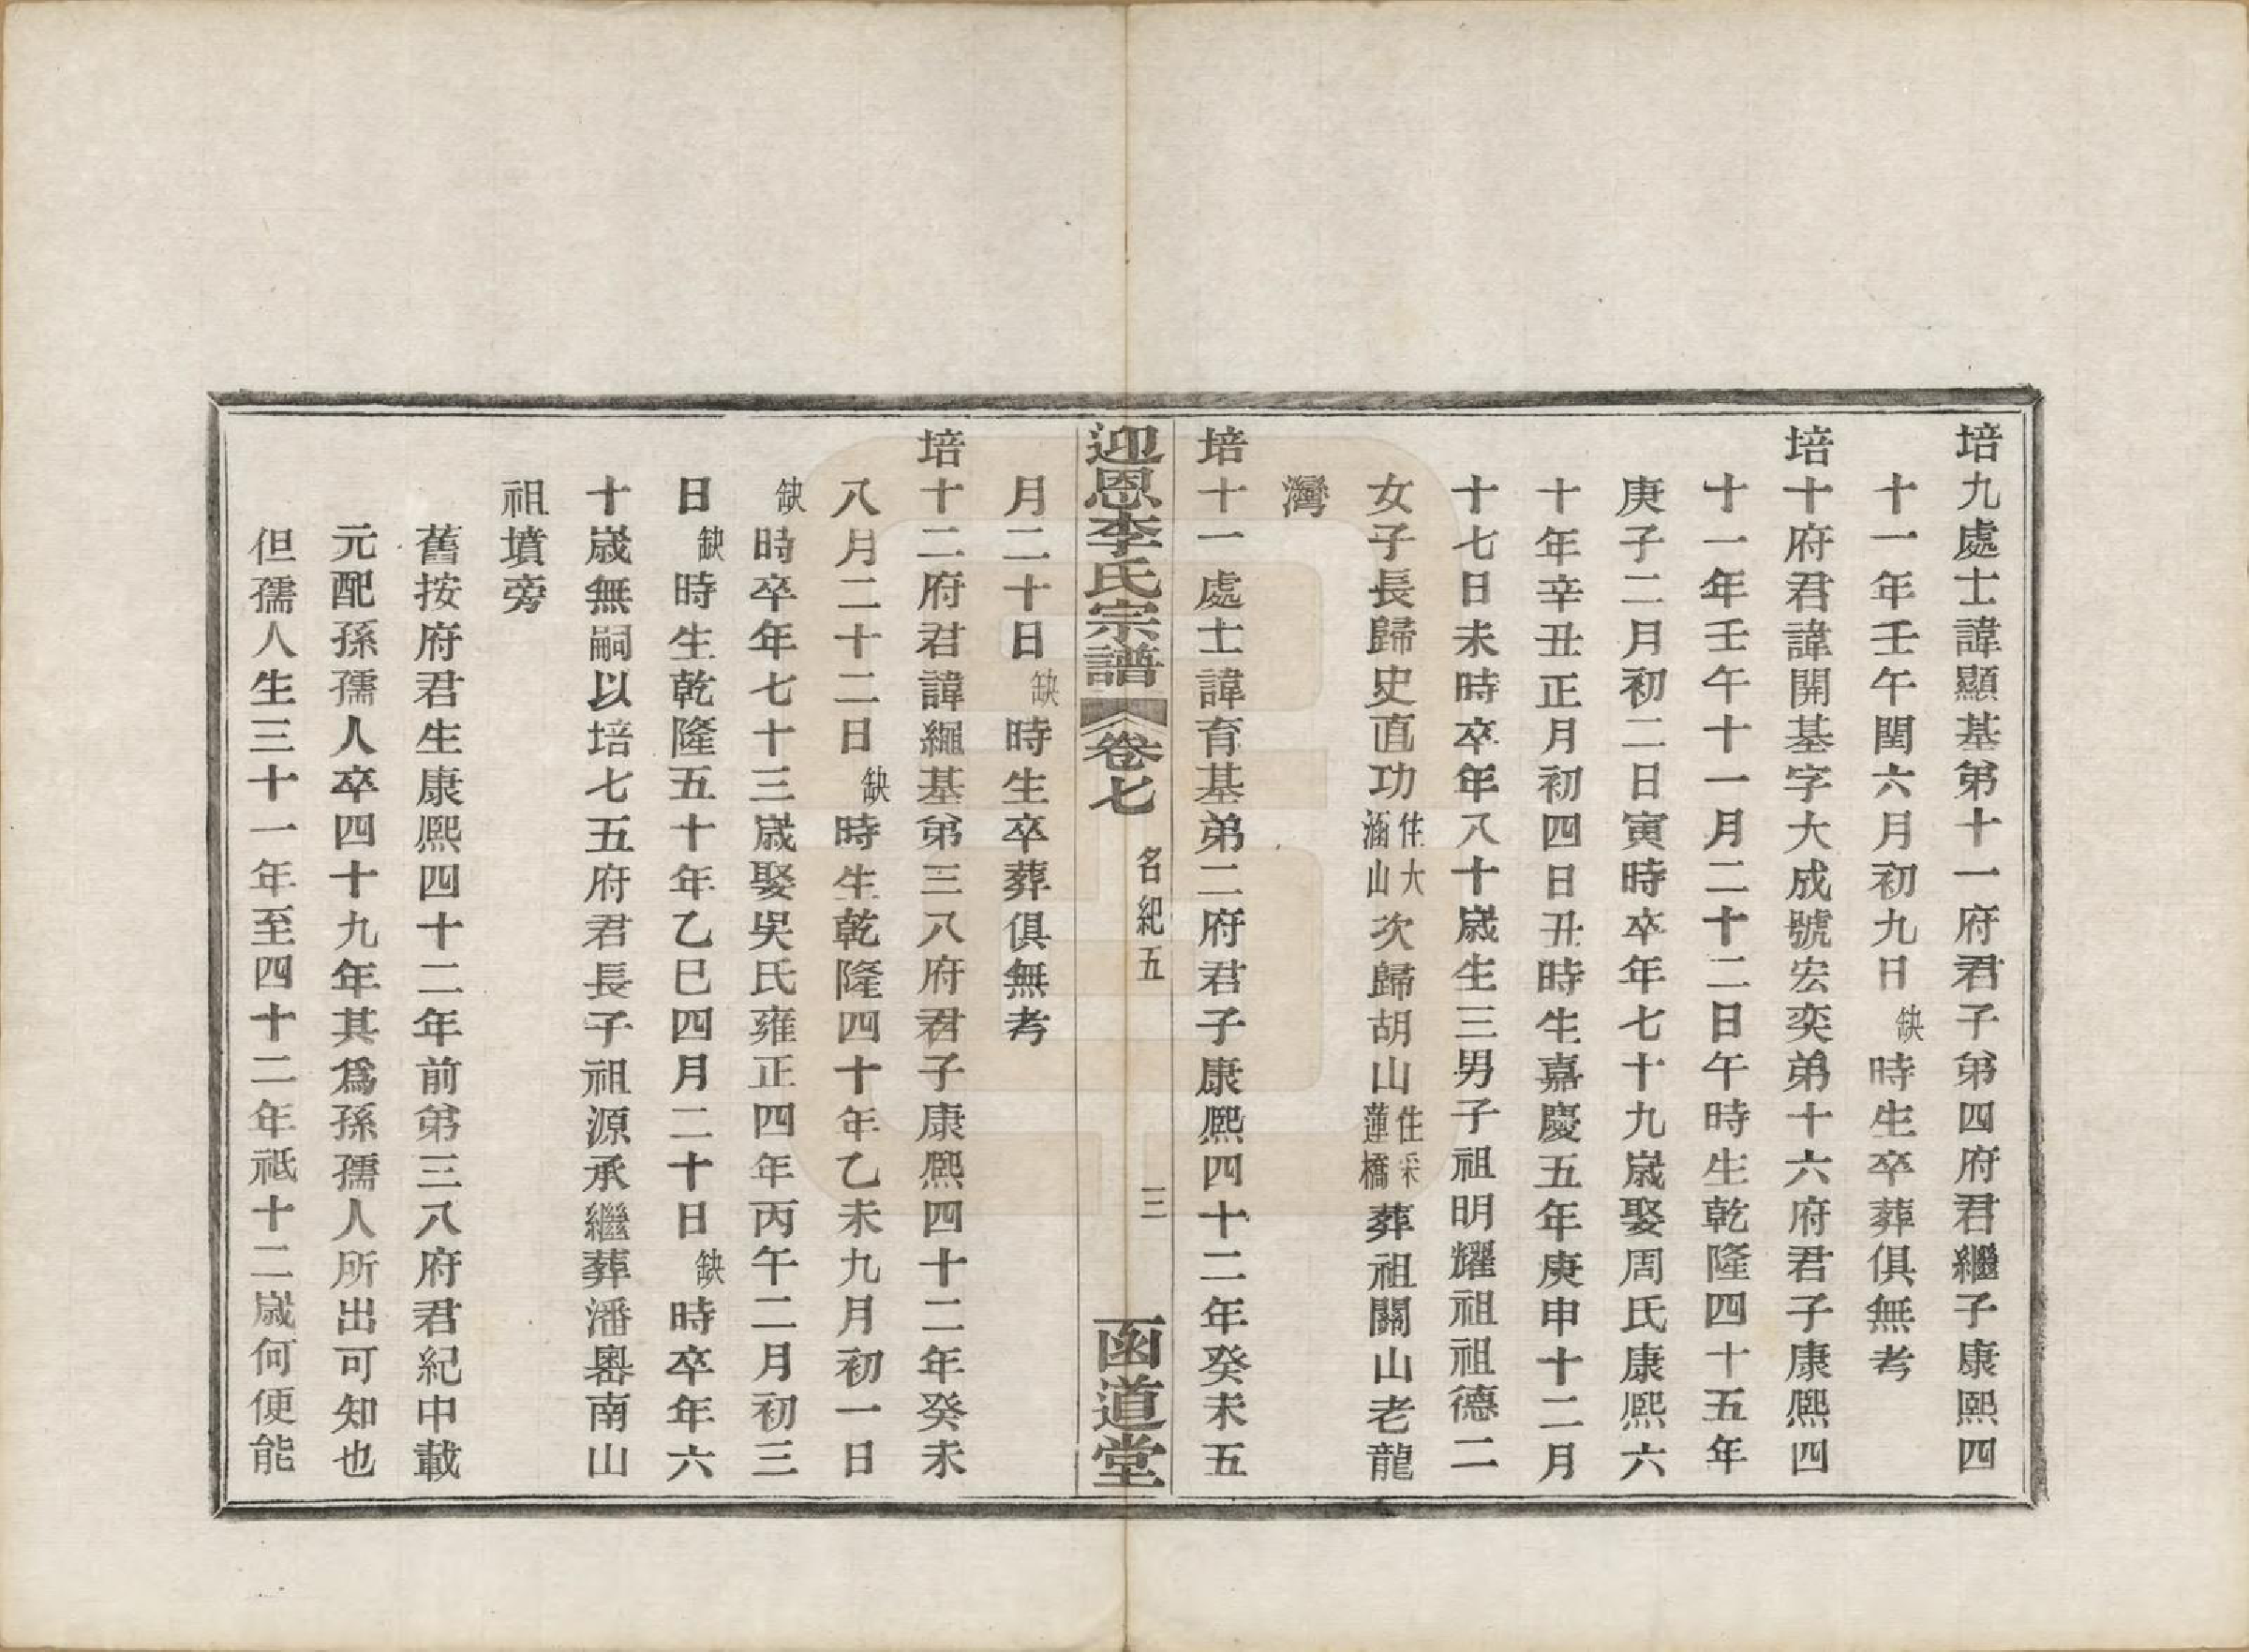 培九處士諱顯基第十一府君子第四府君繼子康熙四
十一年壬午閏六月初九日缺時生卒葬俱無考
培十府君諱開基字大成號宏奕弟十六府君子康熙四
十一年壬午十一月二十二日午時生乾隆四十五年
庚子二月初二日寅時卒年七十九歲娶周氏康熙六
十年辛丑正月初四日丑時生嘉慶五年庚申十二月
十七日未時卒年八十歲生三男子祖明耀祖祖德二
女子長歸史直功住大涵山次歸胡山住采蓮橋葬祖關山老龍
灣
培十一處士諱育基弟二府君子康熙四十二年癸未五
迎恩李氏宗譜 卷七 名紀五 三 函道堂
月二十日缺時生卒葬俱無考
培十二府君諱繩基第三八府君子康熙四十二年癸未
八月二十二日缺時生乾隆四十年乙未九月初一日
缺時卒年七十三歲娶吳氏雍正四年丙午二月初三
日缺時生乾隆五十年乙巳四月二十日缺時卒年六
十歲無嗣以培七五府君長子祖源承繼葬潘嶴南山
祖墳旁
舊按府君生康熙四十二年前第三八府君紀中載
元配孫孺人卒四十九年其爲孫孺人所出可知也
但孺人生三十一年至四十二年祇十二歲何便能